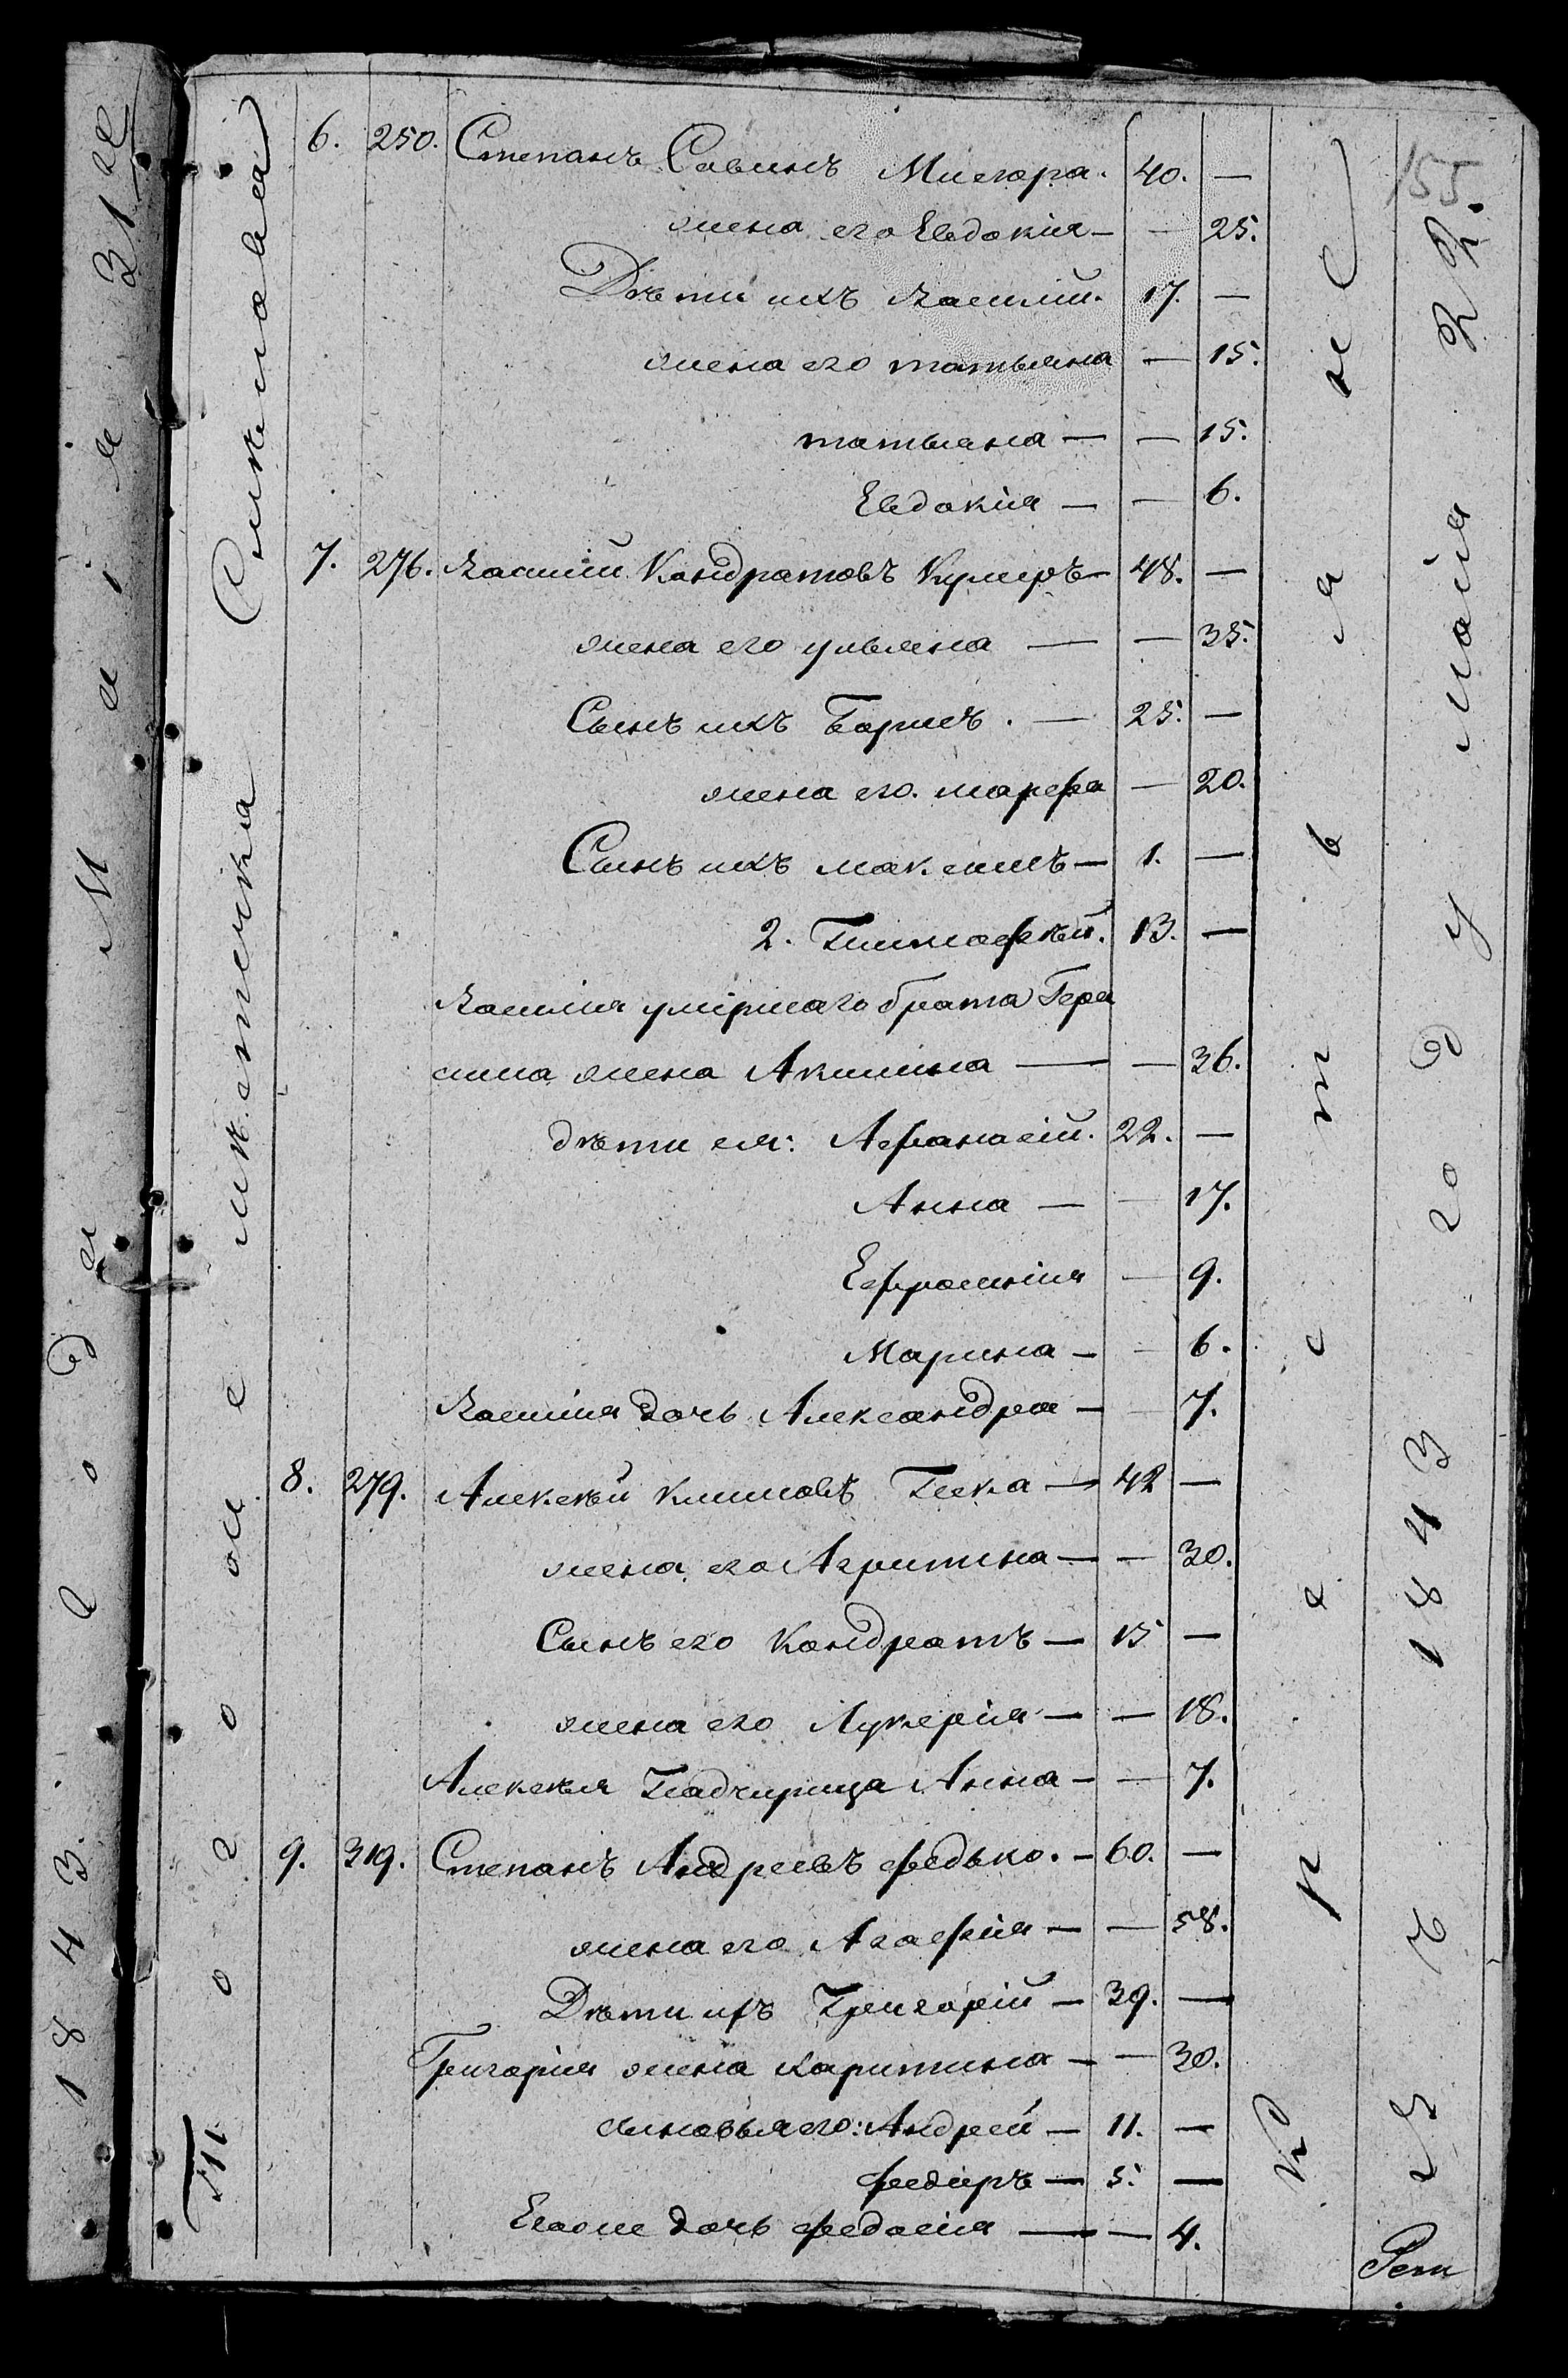 155
6. 250. Степанъ Савинъ Мигора. 40. —
жена его Евдокия — — 25.
Дѣти ихъ Василій. 17. —
жена его татьяна — 15.
татьяна — — 15.
Евдокія — — 6.
7. 276. Василій Кондратовъ — 48. —
жена его ульяна — — 35.
Сынъ ихъ Борисъ. — 25. —
жена его. марфа — 20.
Сынъ ихъ максимъ — 1. —
2. Тимофѣй. 13. —
Василія умершаго брата Гера
сима жена Акилина — — 36.
дѣти ея: Афанасій. 22. —
Анна — — 17.
Ефросинія — 9.
Марина — — 6.
Василія дочь Александра — — 7.
8. 279. Алексѣй климовъ — 42 —
жена его Агрипина — — 30.
Сынъ его Кондратъ — 15 —
жена его Лукерія — — 18.
Алексѣя Падчирица Анна — — 7.
9. 319. Степанъ Андреевъ федько. — 60. —
жена его Агафія — — 58.
Дѣти ихъ Григорій — 39. —
Григорія жена харитина — — 30.
сыновья его: Андрей — 11. —
федиръ — 5. —
Егоже дочь федосія — — 4.
Того же мѣстечка
крестьяне
1843 году маія 22.
1843. года Маія 31 го